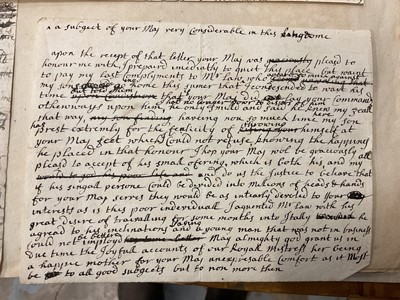 a subject of your Maj very Considerable in this Kingdome
upon the receipt of that letter your Maj was graciously plead to
honour me with, I prepared imediatly to quit this place, but want
to pay my last Complyments to Mr Tan, who
my son home this sumer that I Condesended to wait his
time that your Maj did but your Command
otherwayes upon him, the only I must and said he knows my zeall
had no longer power to dispose of him
that way, having non so much time, my son here
has Prest extremly for the felicity of throwing himself at
your Maj feet which I Could not refuse, knowing the happines
he placed in that honour, I hop your Maj will be graciously
pleasd to accept of his small ofering, which is both his and my all
and do us the Justice to beleave that
if his singall persone Could be devided into Milions of heads & hands
for your Maj serves they would be as intierly devoted to your
interest as is this poor individuall. I aquented Mr Tan with his
great desire of travalling for some months into Itally he
agreed to his inclinations a young man that was not in business
Could not be better employd. May almighty god grant us in
due time the Joyfull accounts of our Royall Mistress her being
a happie mother for your Maj unexpresable Comfort as it Most
be to all good subjects but to non more then